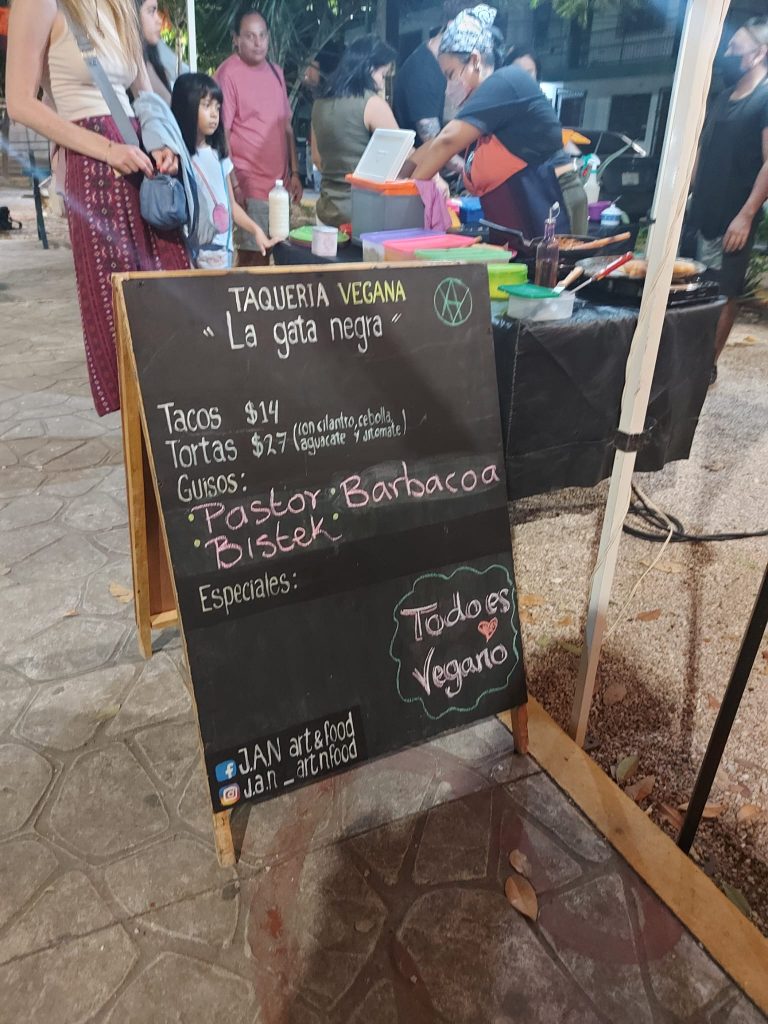 TAQUERIA VEGANA
"La gata negra"
Tacos $14
Tortas $27 (con cilantro, cebolla,
aguacate y jitomate)
Guisos:
• Pastor • Barbacoa
• Bistek
Especiales:
Todo es
Vegano
J.AN art&food
j.a.n_artnfood